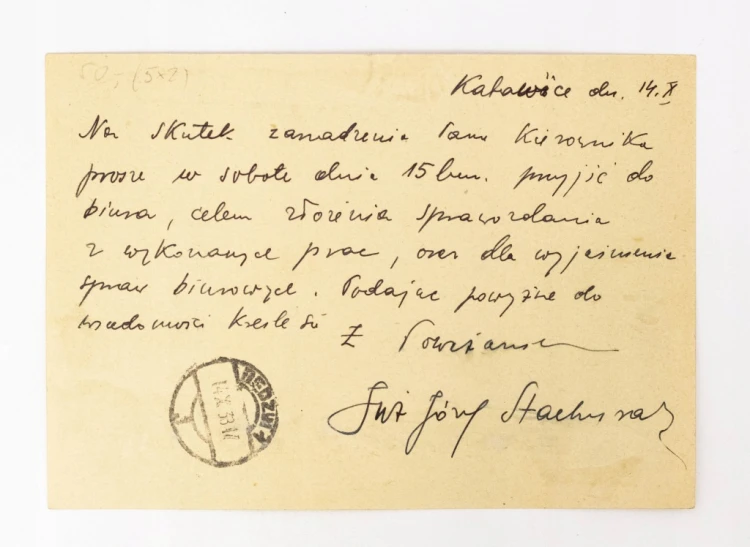 50,- (5x2)
Katowice dn. 14.X
Na skutek zarządzenia Pana Kierownika
proszę w sobotę dnia 15 bm. przyjść do
biura, celem złożenia sprawozdania
z wykonanych prac, oraz dla wyjaśnienia
spraw biurowych. Podając powyższe do
wiadomości kreślę się
Z Poważaniem
Inż Józef
14.X.38.17